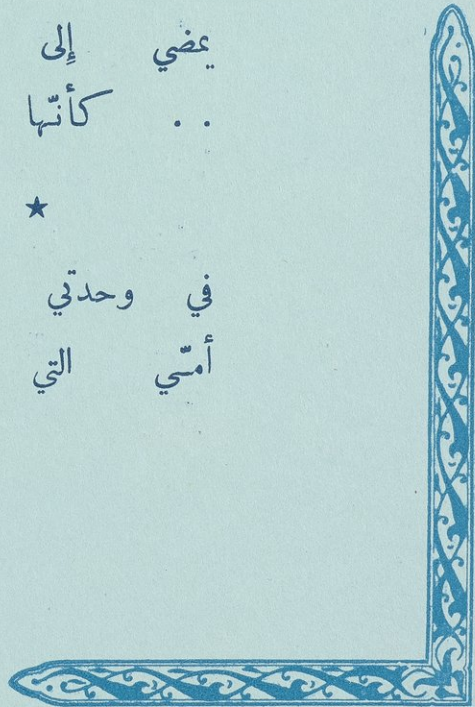 يمضي إلى
. . كأنّها
★
في وحدتي
أمّي التي